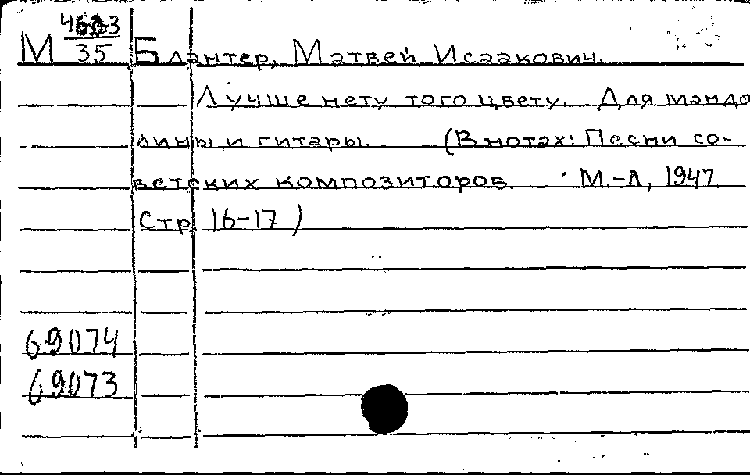 М 35
Блантер, Матвей Исаакович.
Лучше нету того цвету. Для мандо
лины и гитары. (В нотах: Песни со-
ветских композиторов. М.-Л, 1947
Стр 16-17)
69074
69073